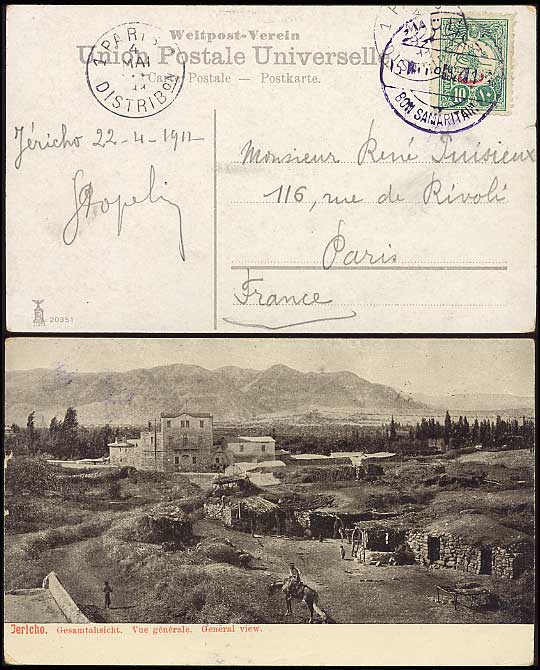 Weltpost-Verein
Union Postale Universelle
Carte Postale — Postkarte.
PARIS
4
MAI
11
DISTRIBON
BON SAMARITAIN
10
Jéricho 22-4-1911
Monsieur René Puisieux
116, rue de Rivoli
Paris
France
20351
Jericho. Gesamtansicht. Vue générale. General view.